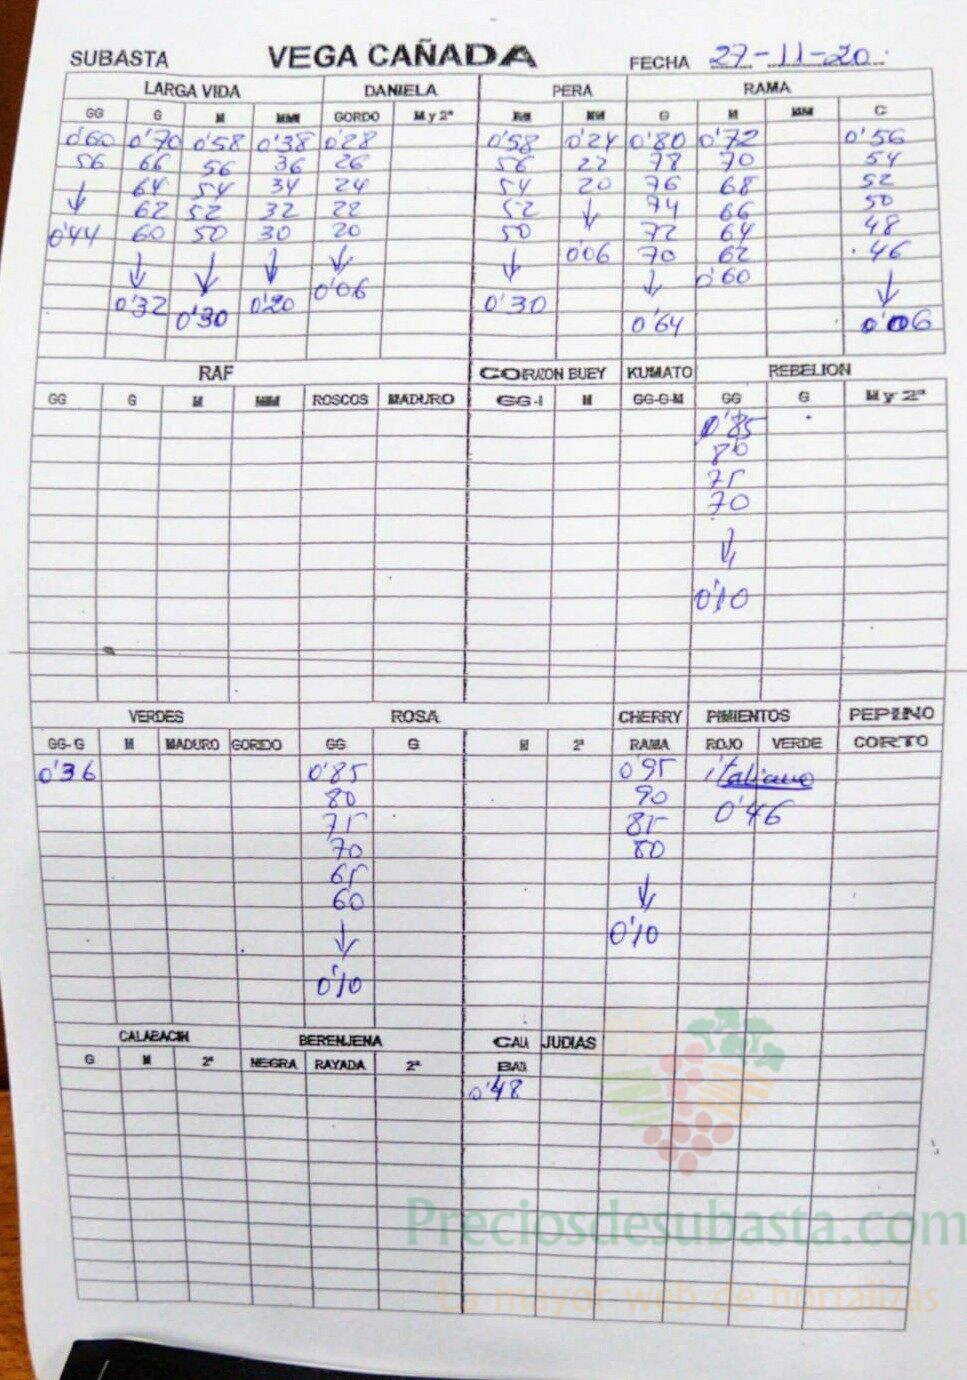 SUBASTA VEGA CAÑADA FECHA 27-11-20
LARGA VIDA DANIELA PERA RAMA
GG G M MM GORDO M y 2ª MM G M MM C
0'60 0'70 0'58 0'38 0'28 0'58 0'24 0'80 0'72 0'56
56 66 56 36 26 56 22 78 70 54
↓ 64 54 34 24 54 20 76 68 52
62 52 32 22 52 ↓ 74 66 50
0'44 60 50 30 20 50 72 64 48
↓ ↓ ↓ ↓ ↓ 0'06 70 62 46
0'32 0'30 0'20 0'06 0'30 ↓ 0'60 ↓
0'64 0'06
RAF CORAZON BUEY KUMATO REBELION
GG G M MM ROSCOS MADURO GG-1 M GG-G-M GG G M y 2ª
0'85
80
75
70
↓
0'10
VERDES ROSA CHERRY PIMIENTOS PEPINO
GG-G M MADURO GORDO GG G M 2ª RAMA ROJO VERDE CORTO
0'36 0'85 0'95 italiano
80 90 0'46
75 85
70 80
65
60 ↓
↓ 0'10
0'10
CALABACIN BERENJENA CALA JUDIAS
G M 2ª NEGRA RAYADA 2ª BAZA
0'48
Preciosdesubasta.com
La mayor web de hortalizas